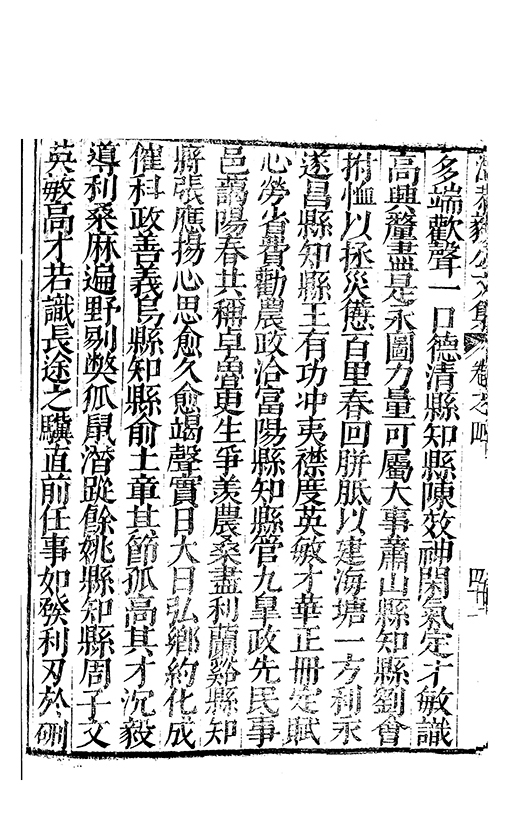 溫恭毅公文集 卷之四 四十一
多端歡聲一口德清縣知縣陳效神閑氣定才敏識
高興釐盡是永圖力量可屬大事蕭山縣知縣劉會
拊恤以拯災憊百里春回胼胝以建海塘一方利永
遂昌縣知縣王有功冲夷襟度英敏才華正冊定賦
心勞省費勸農政洽富陽縣知縣管九皐政先民事
邑藹陽春共稱卓魯更生爭羡農桑盡利蘭谿縣知
縣張應揚心思愈久愈竭聲實日大日弘鄉約化成
催科政善義烏縣知縣俞士章其節孤高其才沉毅
導利桑麻遍野剔獘狐鼠潛蹤餘姚縣知縣周子文
英敏高才若識長途之驥直前任事如發利刃於硎